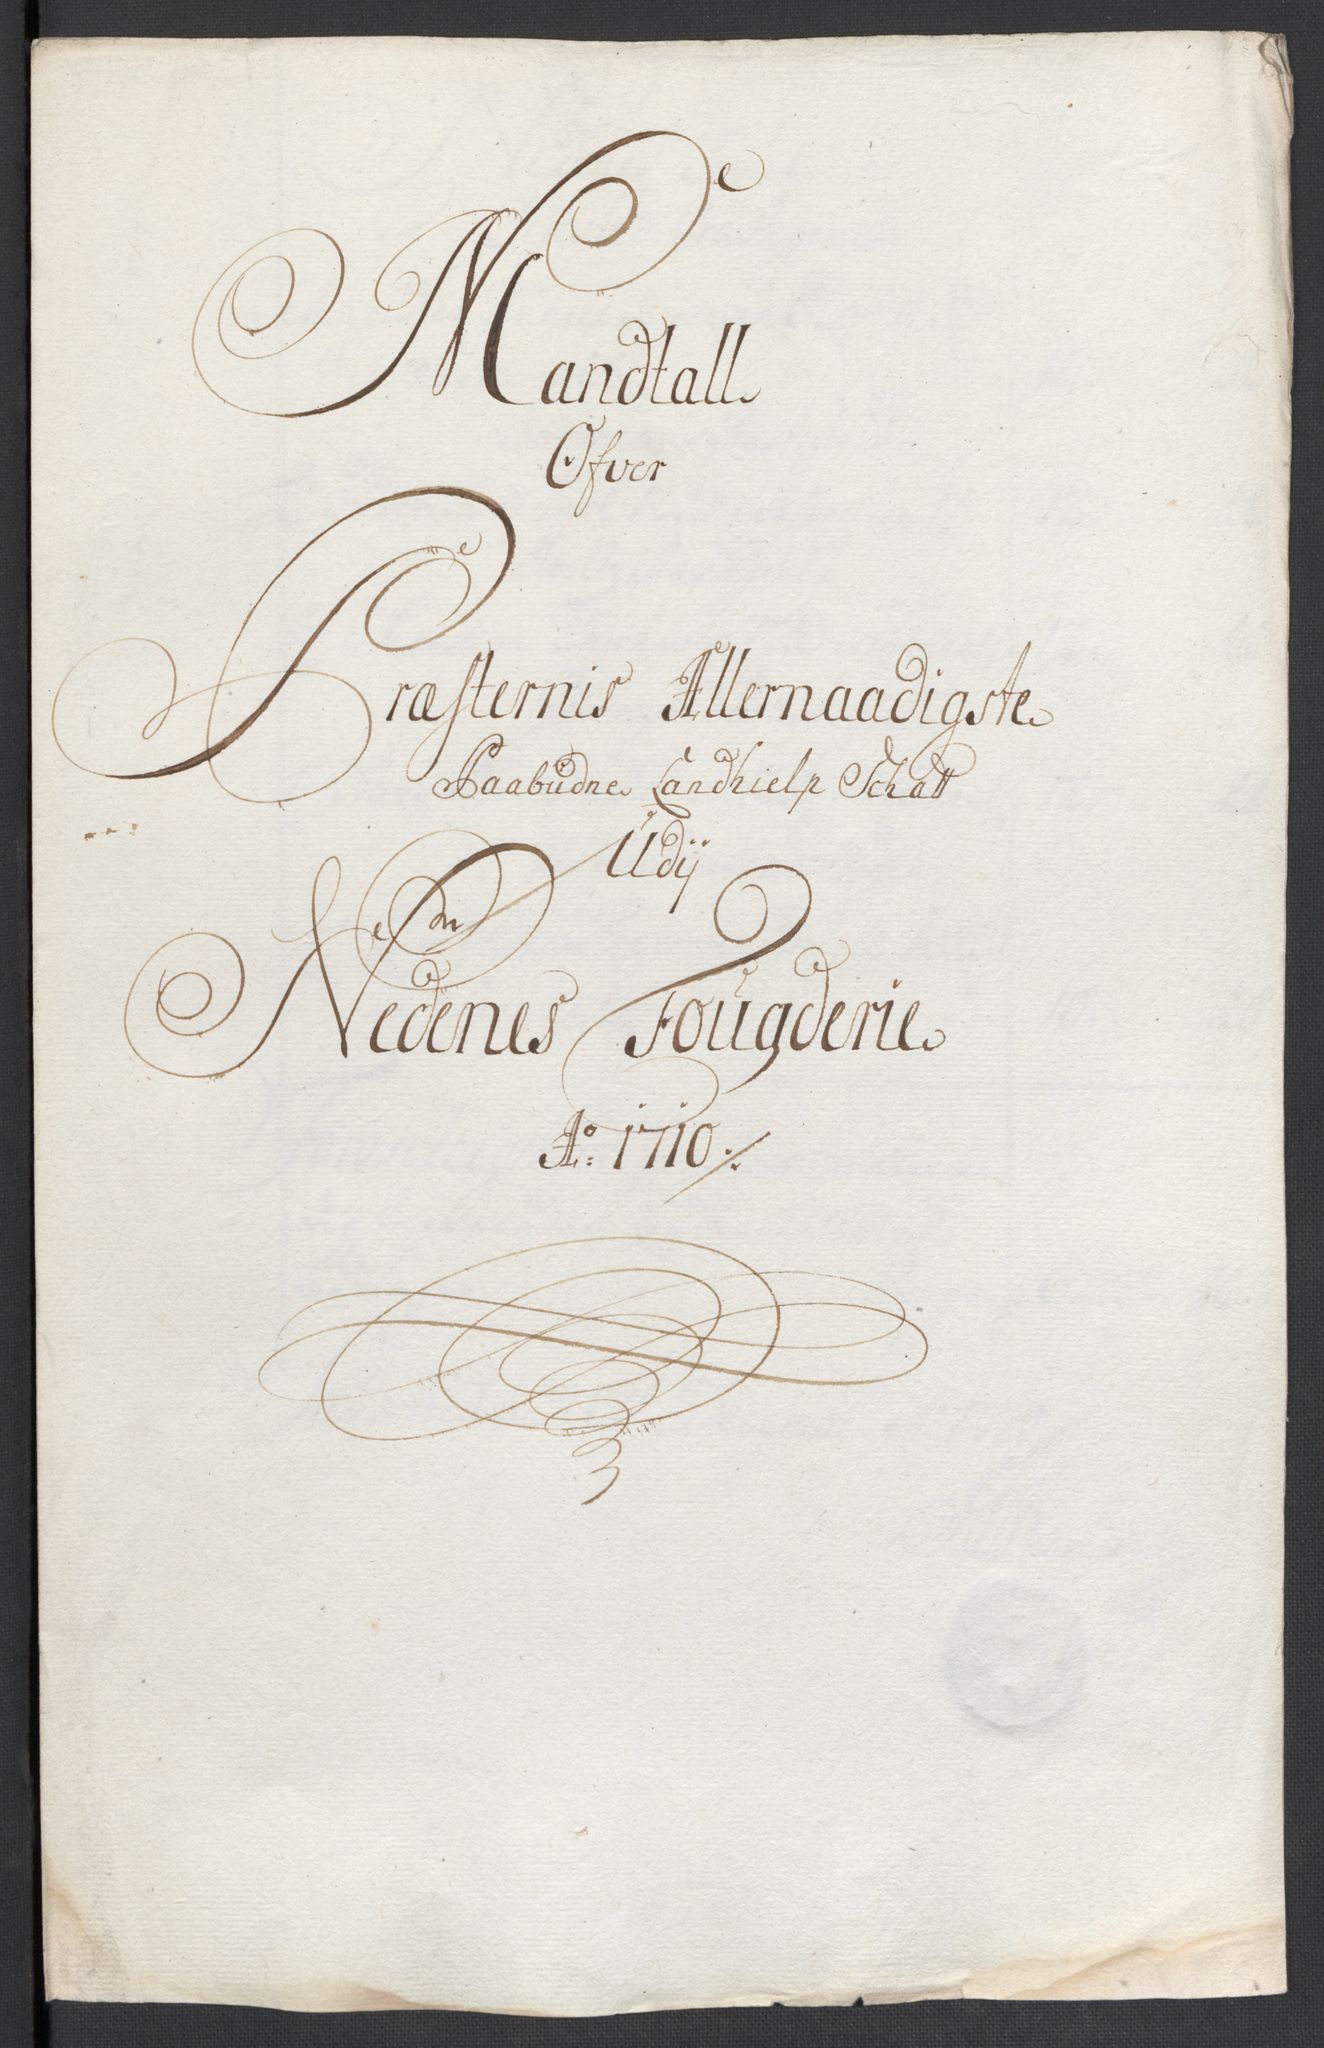 Mandtall
Ofver
Præsternis Allernaadigste
Paabudne Landhielp Schatt
Udij
Nedenes Fougderie
Ao: 1710 ./.